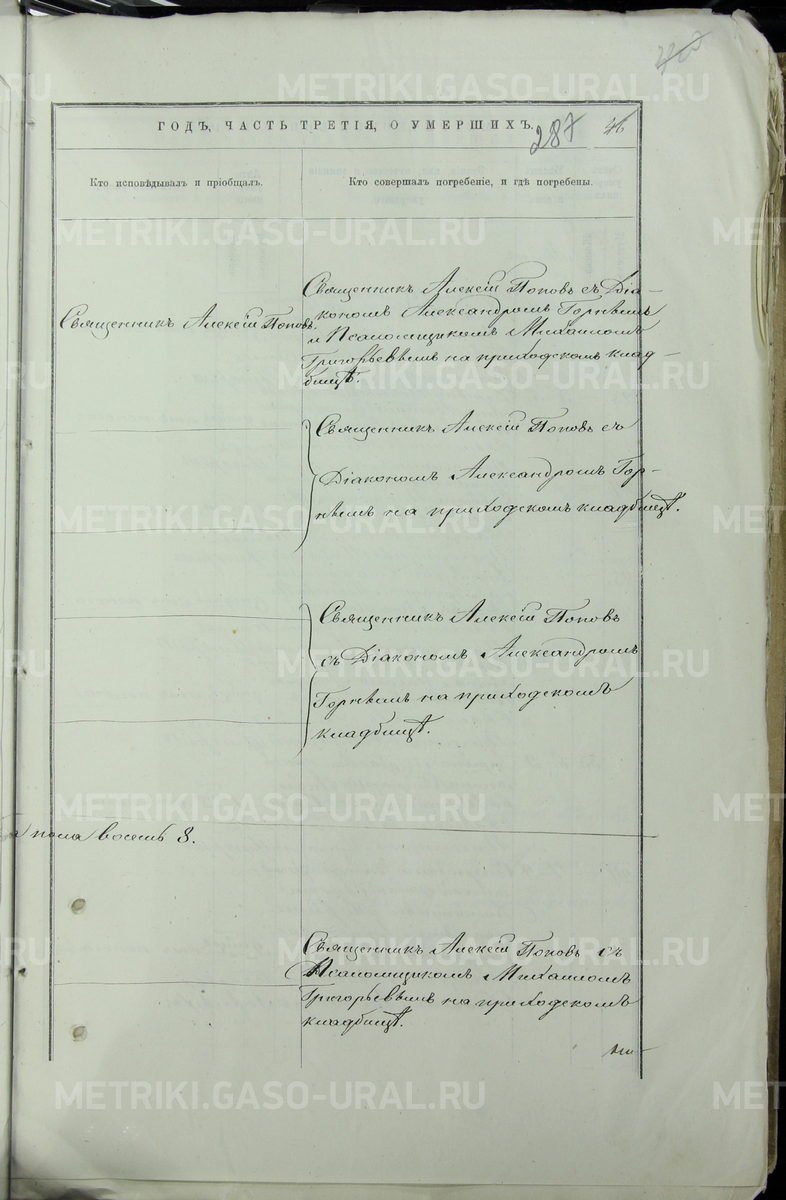 ГОДЪ, ЧАСТЬ ТРЕТІЯ, О УМЕРШИХЪ.
287
46
Кто исповѣдывалъ и пріобщалъ.
Кто совершалъ погребеніе, и гдѣ погребены.
METRIKI.GASO-URAL.RU
Священникъ Алексій Поповъ.
Священникъ Алексій Поповъ съ Діа-
кономъ Александромъ Горнымъ
и Псаломщикомъ Михаиломъ
Григорьевымъ на приходскомъ клад-
бищѣ.
Священникъ Алексій Поповъ съ
Діакономъ Александромъ Гор-
нымъ на приходскомъ кладбищѣ.
Священникъ Алексій Поповъ
съ Діакономъ Александромъ
Горнымъ на приходскомъ
кладбищѣ.
пола восемь 8.
Священникъ Алексій Поповъ съ
Псаломщикомъ Михаиломъ
Григорьевымъ на приходскомъ
кладбищѣ.